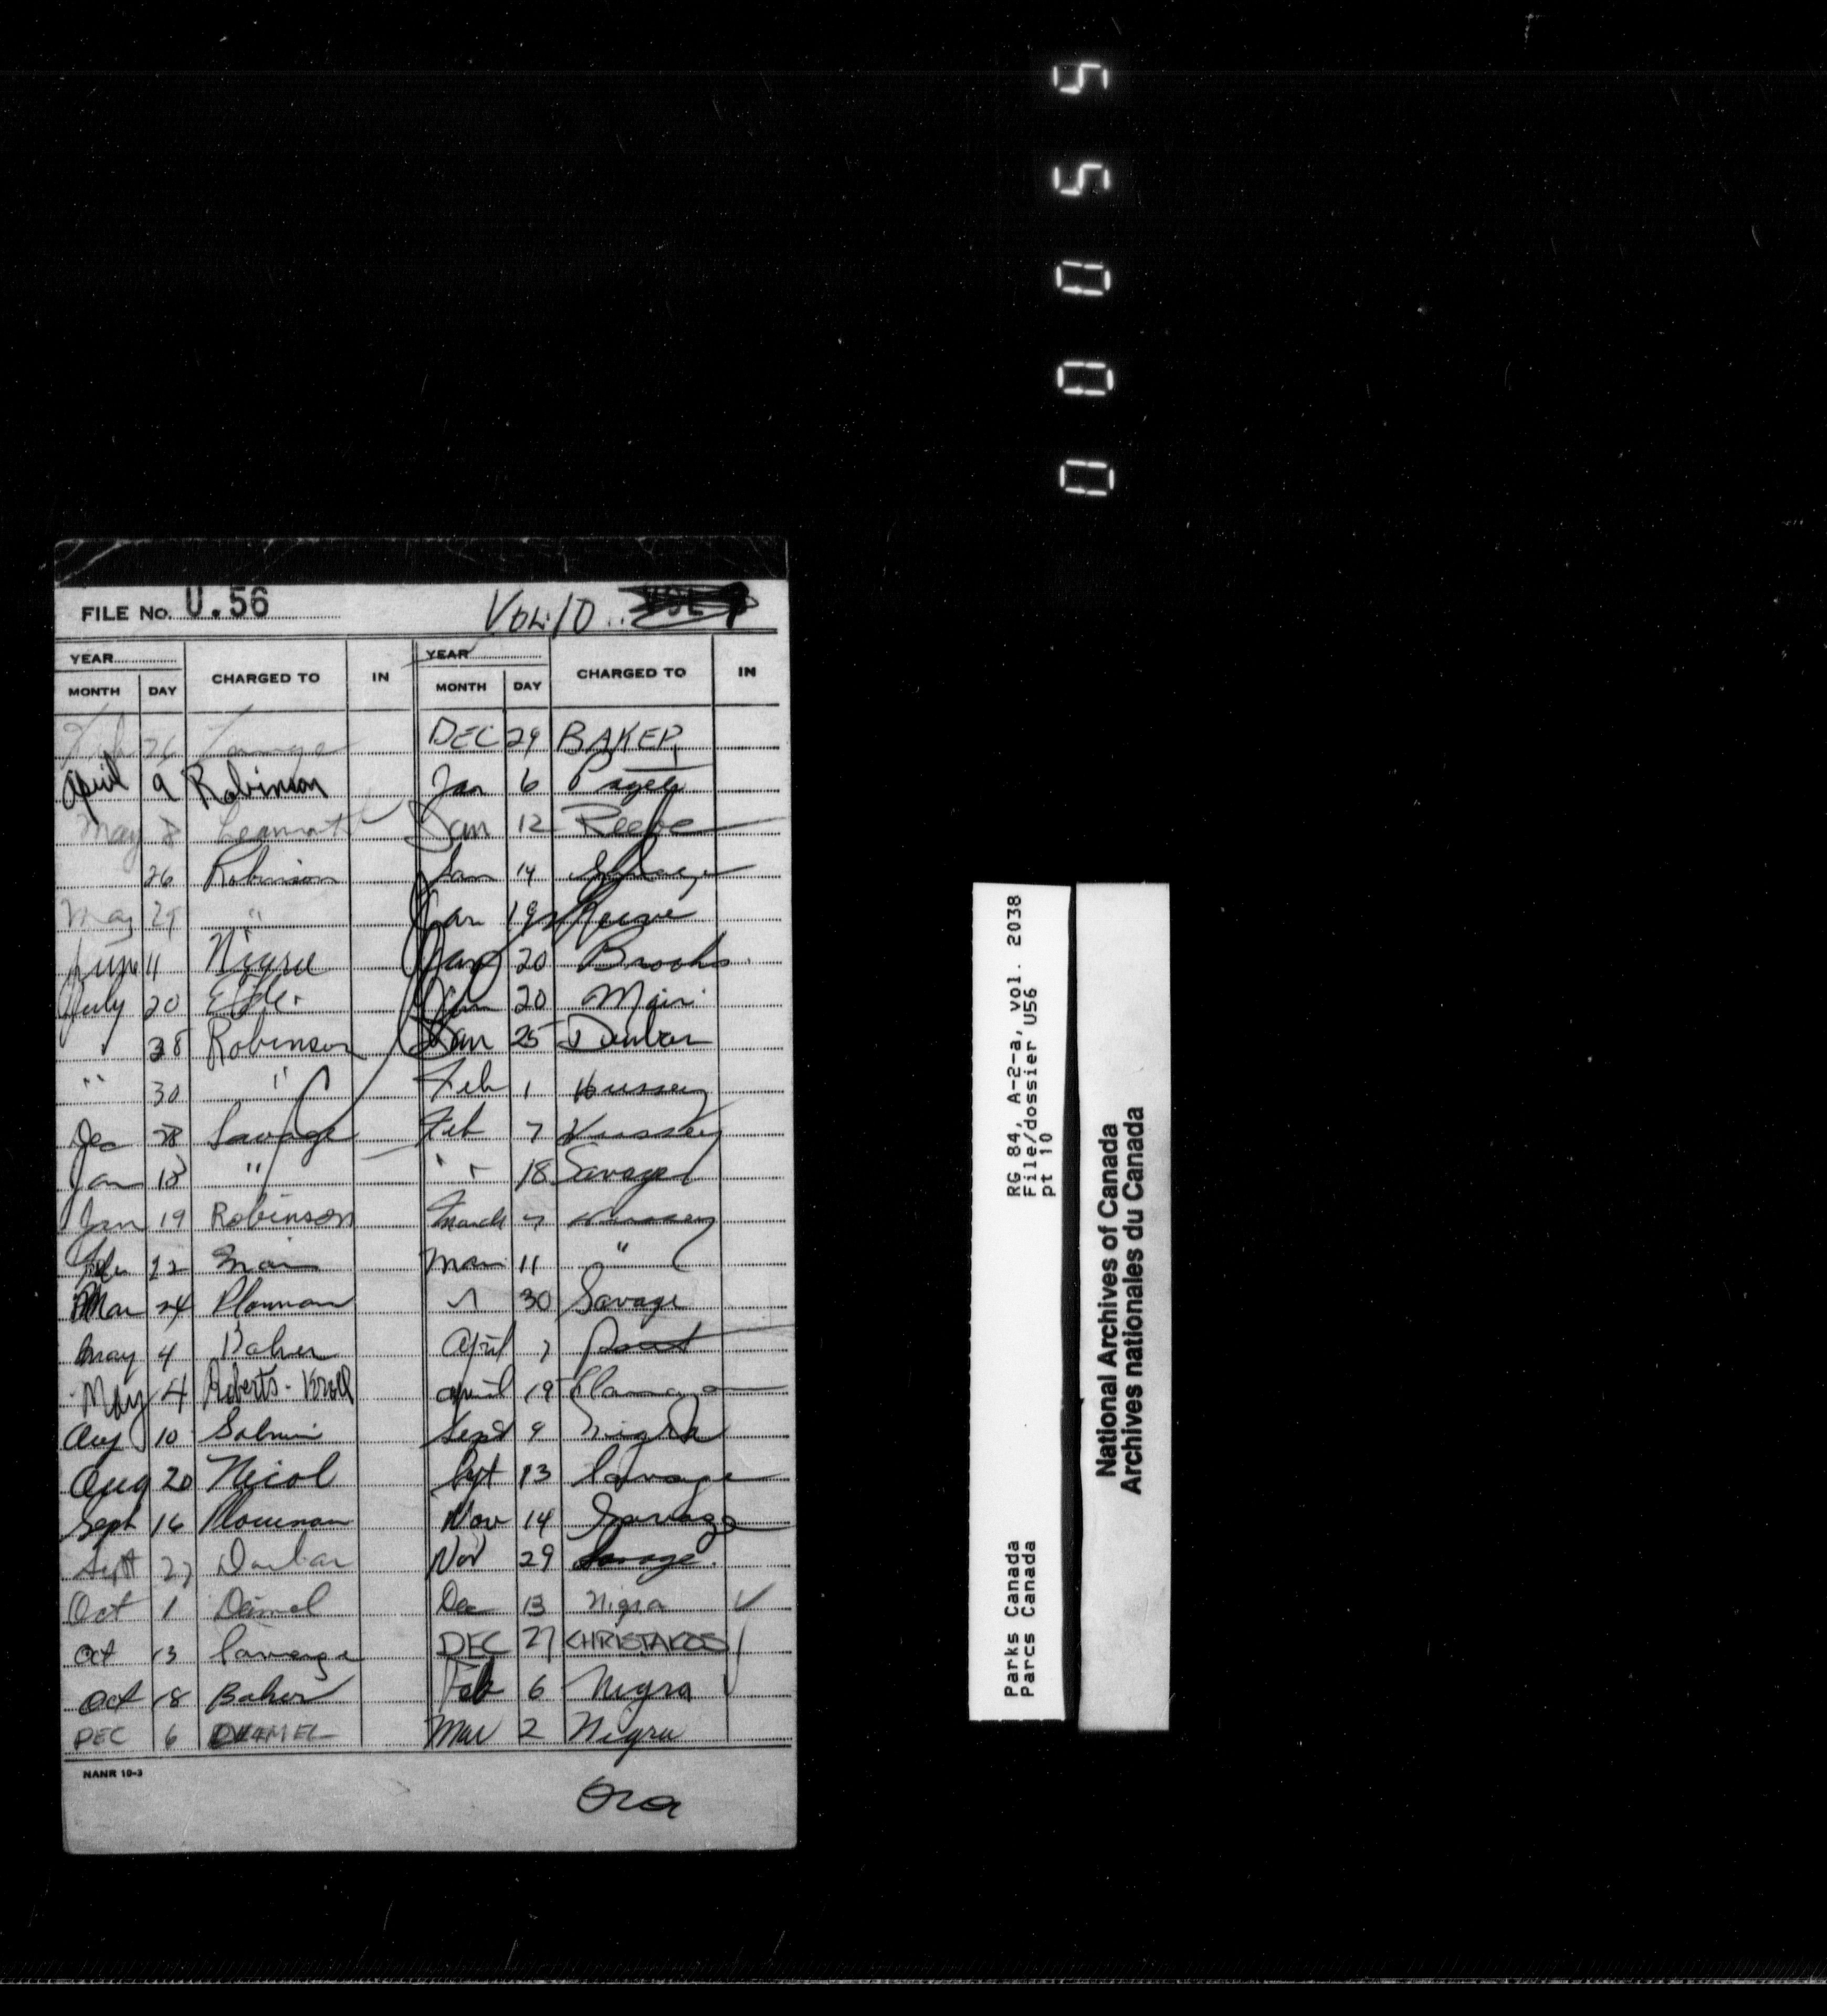 000055
FILE No. U.56 VOL. 10
YEAR YEAR
MONTH DAY CHARGED TO IN MONTH DAY CHARGED TO IN
Feb 26 DEC 29 BAKER
April 9 Robinson Jan 6
May 8 Jan 12 Reeve
26 Robinson Jan 14
May 25 " Jan 19
June 11 Jan 20 Brooks
July 20 Jan 20 Main
28 Robinson Jan 25 Dunbar
" 30 " Feb 1 Hussey
Dec 28 Savage Feb 7 Hussey
Jan 13 " " 18 Savage
Jan 19 Robinson March 7 Hussey
Feb 22 Main Mar 11 "
Mar 24 Plowman 30 Savage
May 4 Baker April 7
May 4 Roberts - April 19
Aug 10 Sept 9 Nigra
Aug 20 Nicol Sept 13 Savage
Sept 16 Plowman Nov 14 Savage
Sept 27 Dunbar Nov 29 Savage.
Oct 1 Dec 13 Nigra ✓
Oct 13 Savage DEC 27 CHRISTAKOS ✓
Oct 18 Baker Feb 6 Nigra
DEC 6 Mar 2 Nigra
NANR 10-3
RG 84, A-2-a, vol. 2038
File/dossier U56
pt 10
Parks Canada
Parcs Canada
National Archives of Canada
Archives nationales du Canada